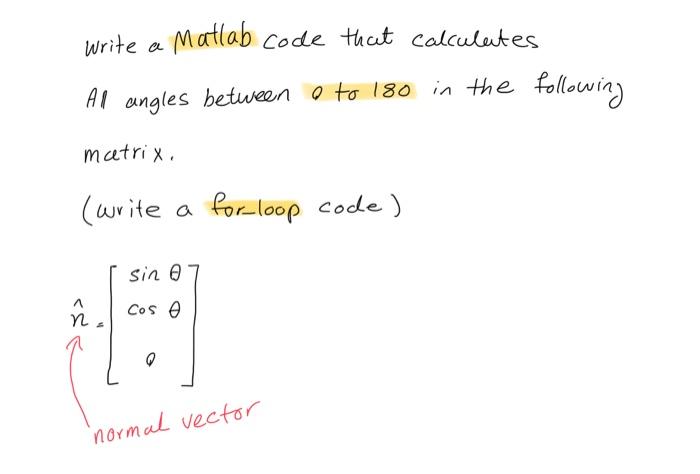 Write a Matlab code that calculates
All angles between 0 to 180 in the following
matrix.
(write a for-loop code)
n̂ = [ sin θ
cos θ
0 ]
normal vector